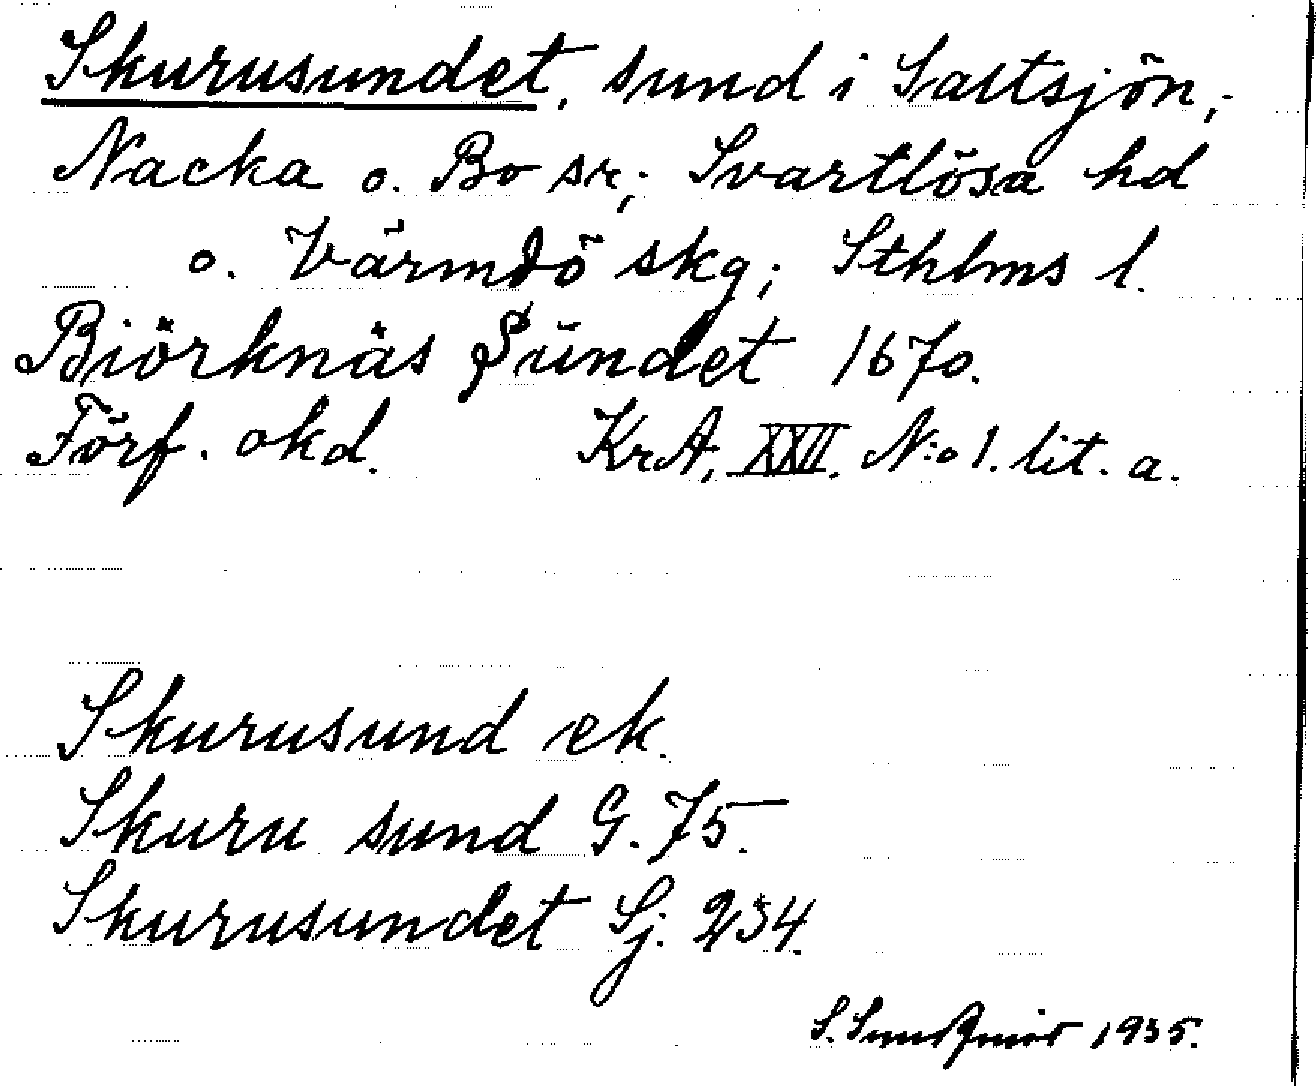 Skurusundet, sund i Saltsjön,
Nacka o. Bo sr; Svartlösa hd
o. Värmdö skg; Sthlms l.
Biörknäs Sündet 1670.
Förf. okd. KrA, XXII. N:o 1. lit. a.
Skurusund ek.
Skuru sund G. 75.
Skurusundet Sj. 234.
S. 1935.